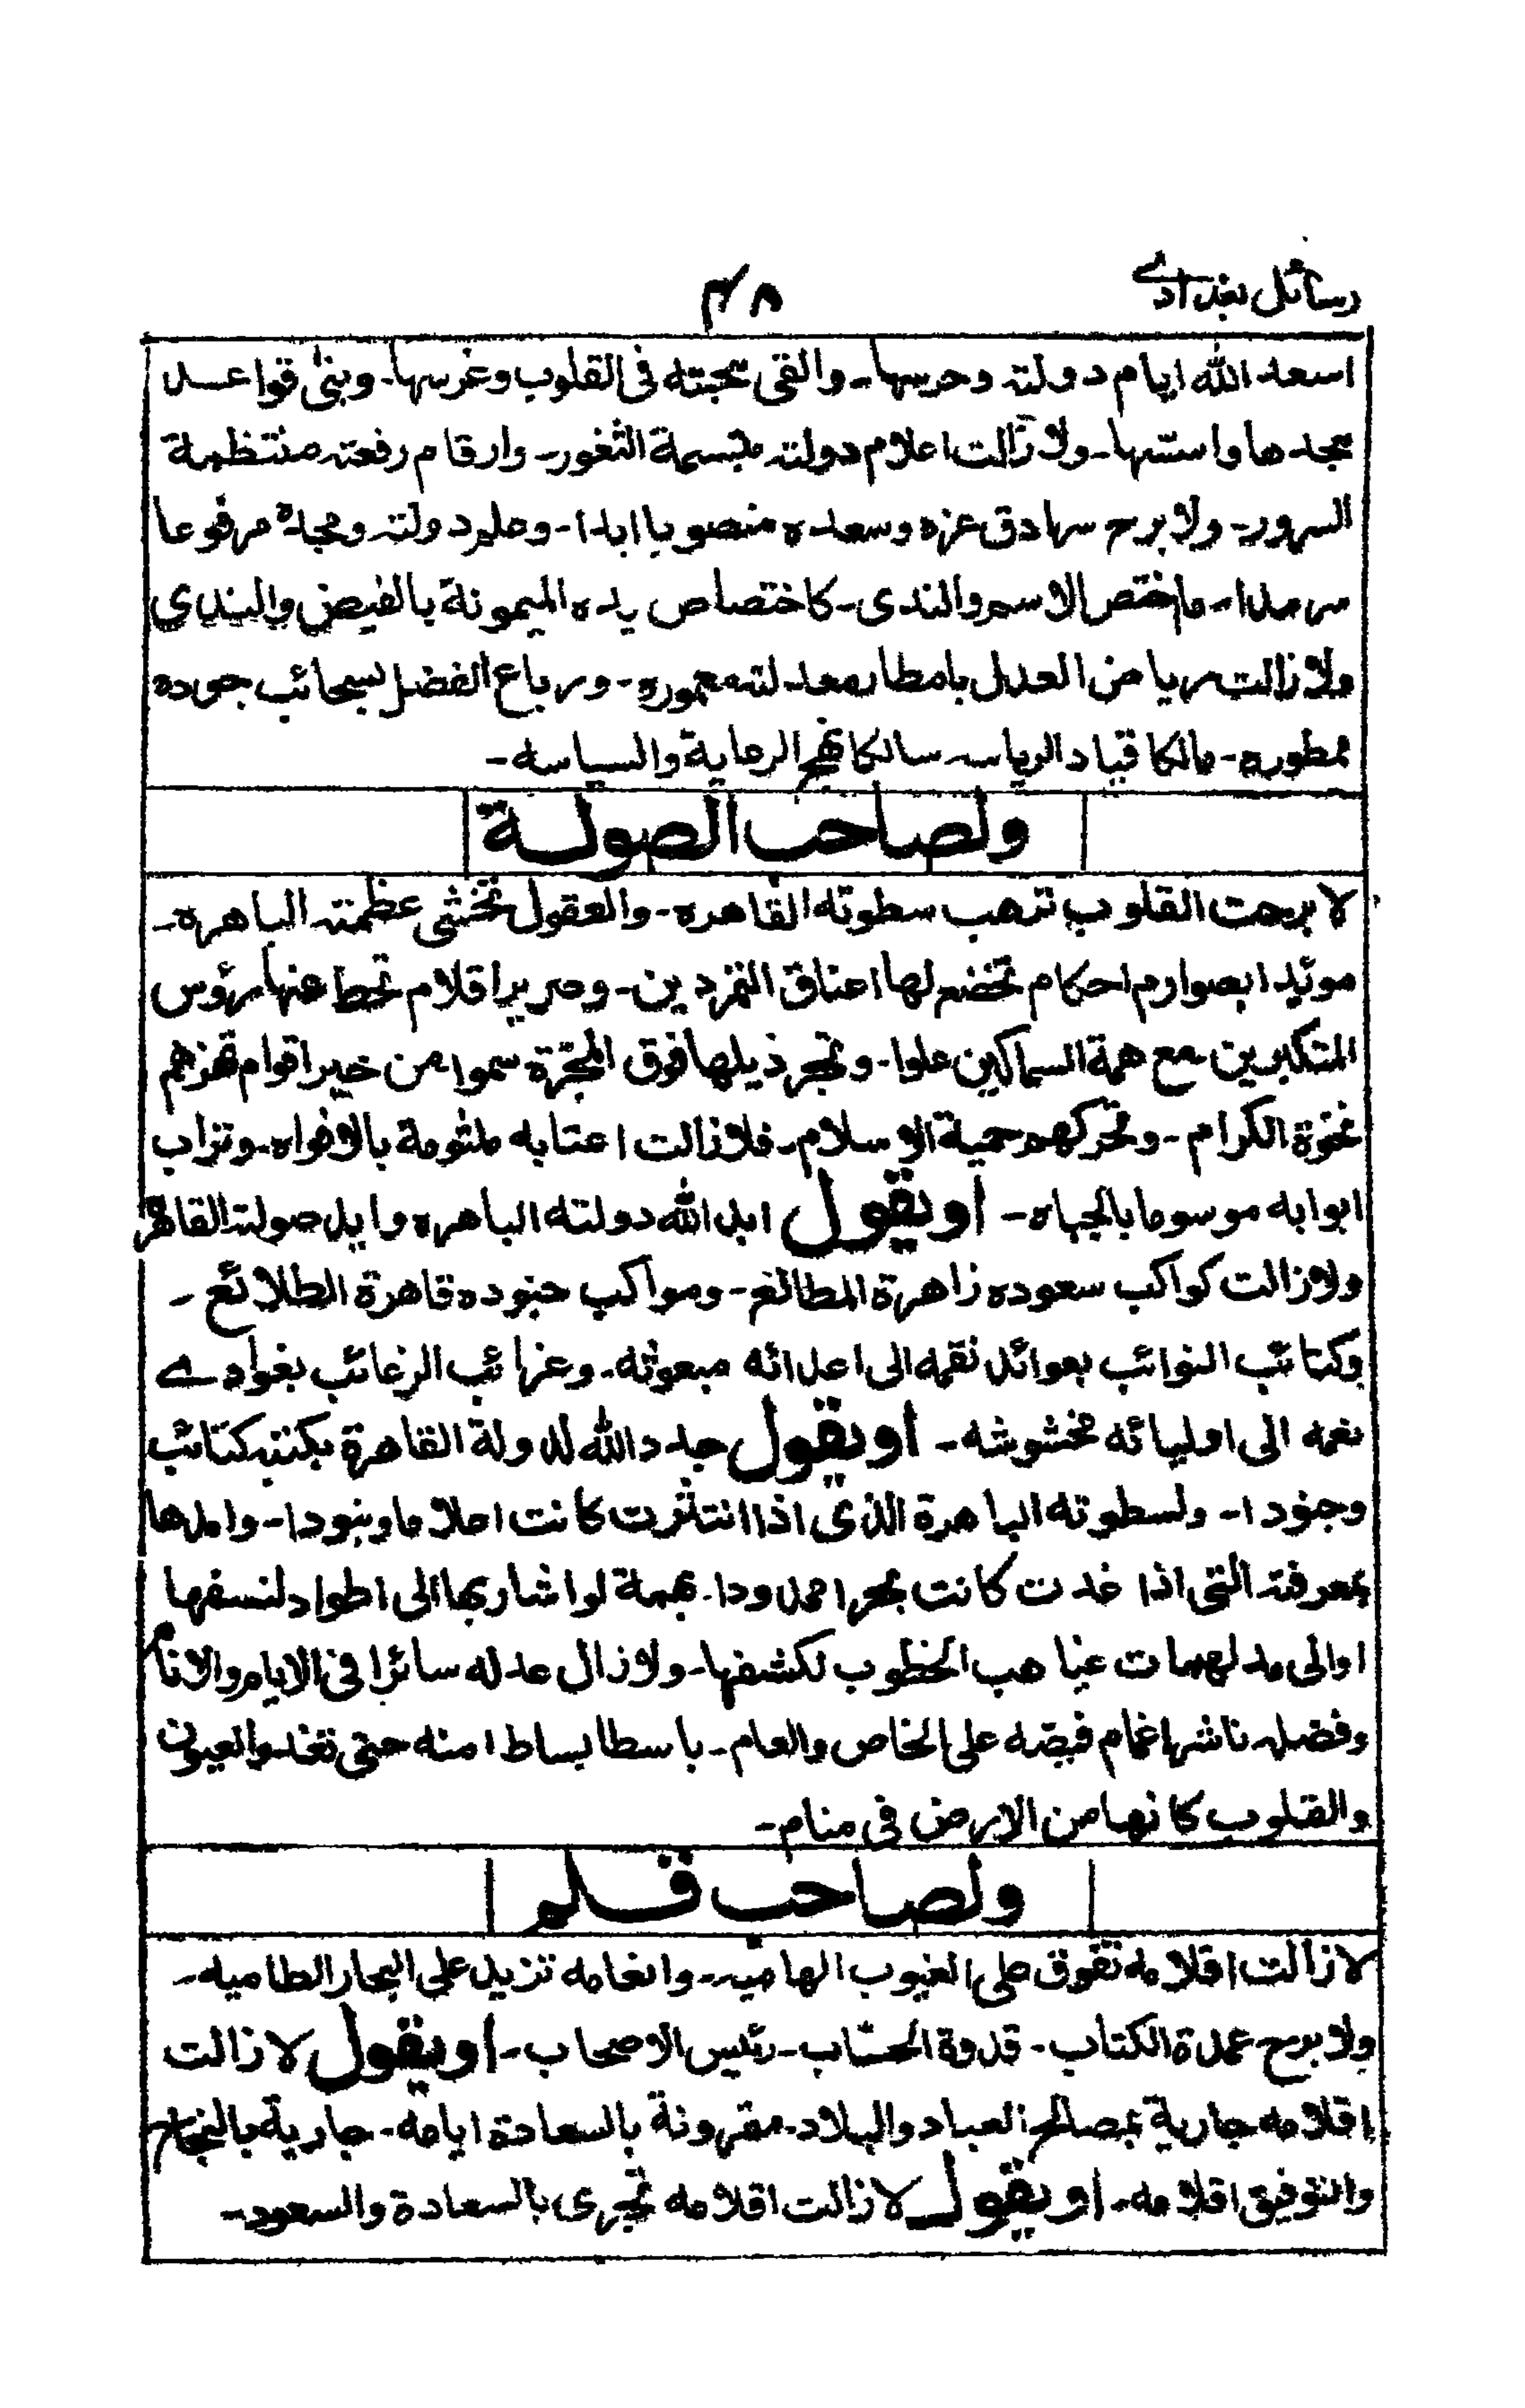 رسائل بغدادے
۴۸
اسعد الله ايام دولته وحرسها۔ والقى محبته فى القلوب وغرسها۔ وبنى قواعـد
مجدها واسسها۔ ولا زالت اعلام دولته مبتسمة الثغور۔ وارقام رفعته منتظمة
السرور۔ ولا برح سرادق عزه وسعده منصوبا ابدا۔ وعلم دولته ومجده مرفوعا
سرمدا۔ ما اختص الاسم والندى۔ كاختصاص يده الميمونة بالفيض والندى
ولا زالت رياض العدل بامطار معدلته معموره۔ ورباع الفضل بسحائب جوده
ممطوره۔ مالكا قياد الرياسه سالكا نهج الرعاية والسياسه۔
ولصاحب الصولة
لا برحت القلوب ترهب سطوته القاهره۔ والعقول تخشى عظمته الباهره۔
مويدا بصوارم احكام تخضع لها اعناق المتمردين۔ وصرير اقلام تحط عنها رؤس
المتكبرين مع همة السماكين علوا۔ وتجر ذيلها فوق المجرّة سموا من خير اقوام تهزهم
نخوة الكرام۔ وتحركهم حمية الاسلام۔ فلا زالت اعتابه ملثومة بالافواه۔ وتراب
ابوابه موسوما بالجباه۔ اويقول ابد الله دولته الباهره وايد صولته القاهره
ولا زالت كواكب سعوده زاهرة المطالع۔ ومواكب جنوده قاهرة الطلائع۔
وكتائب النوائب بعوائد نقمه الى اعدائه مبعوثه۔ وغرائب الرغائب بغوادے
نعمه الى اوليائه محثوثه۔ اويقول جدد الله لدولة القاهرة بكتبه كتائب
وجنودا۔ ولسطوته الباهرة الذى اذا انتثرت كانت اعلاما وبنودا۔ وامدها
بمعرفته التى اذا غدت كانت بحرا ممدودا۔ بهمة لو اشار بها الى اطواد لنسفها
او الى مدلهمات غياهب الخطوب لكشفها۔ ولا زال عدله سائرا فى الايام والانام
وفضله ناشرا غمام فيضه على الخاص والعام۔ باسطا بساط امنه حتى تغدو العيون
والقلوب كانها من الارض فى منام۔
ولصاحب قـلم
لا زالت اقلامه تفوق على الغيوب الهاميه۔ وانعامه تزيد على البحار الطاميه۔
ولا برح عمدة الكتاب۔ قدوة الحسّاب۔ رئيس الاصحاب۔ اويقول لا زالت
اقلامه جارية بمصالح العباد والبلاد۔ مقرونة بالسعادة ايامه۔ جارية بالنجاح
والتوفيق اقلامه۔ اويقول لا زالت اقلامه تجرى بالسعادة والسعود۔